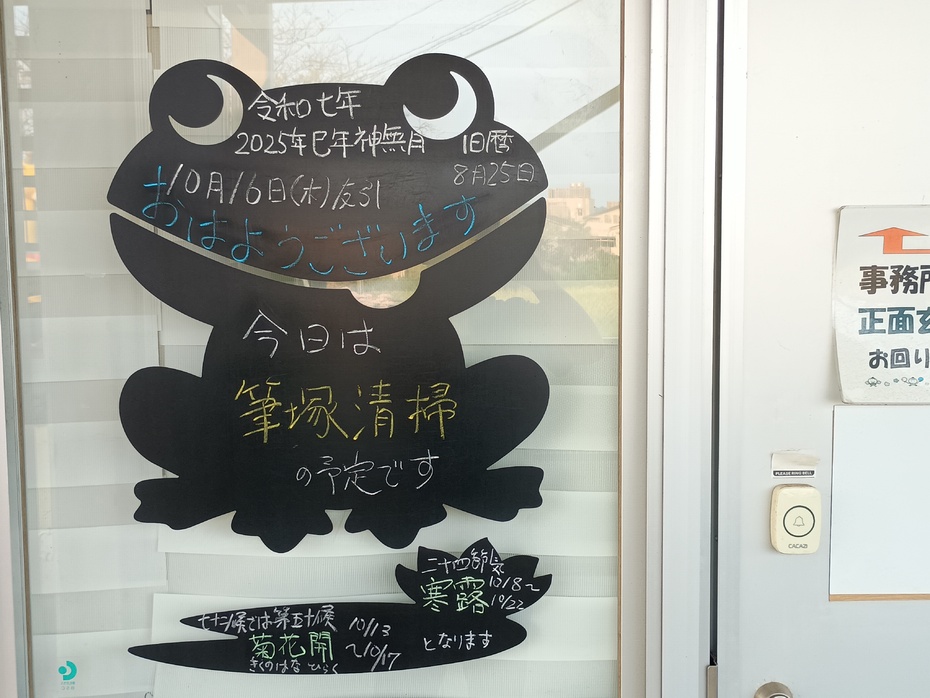 令和七年
2025年巳年神無月 旧暦
8月25日
10月16日(木)友引
おはようございます
今日は
筆塚清掃
の予定です
二十四節気
寒露 10/8〜
10/22
七十二候では第五十候 10/13
菊花開 〜10/17
きくのはな ひらく
となります
事務所
正面玄
お回り
PLEASE RING BELL
CACAZI